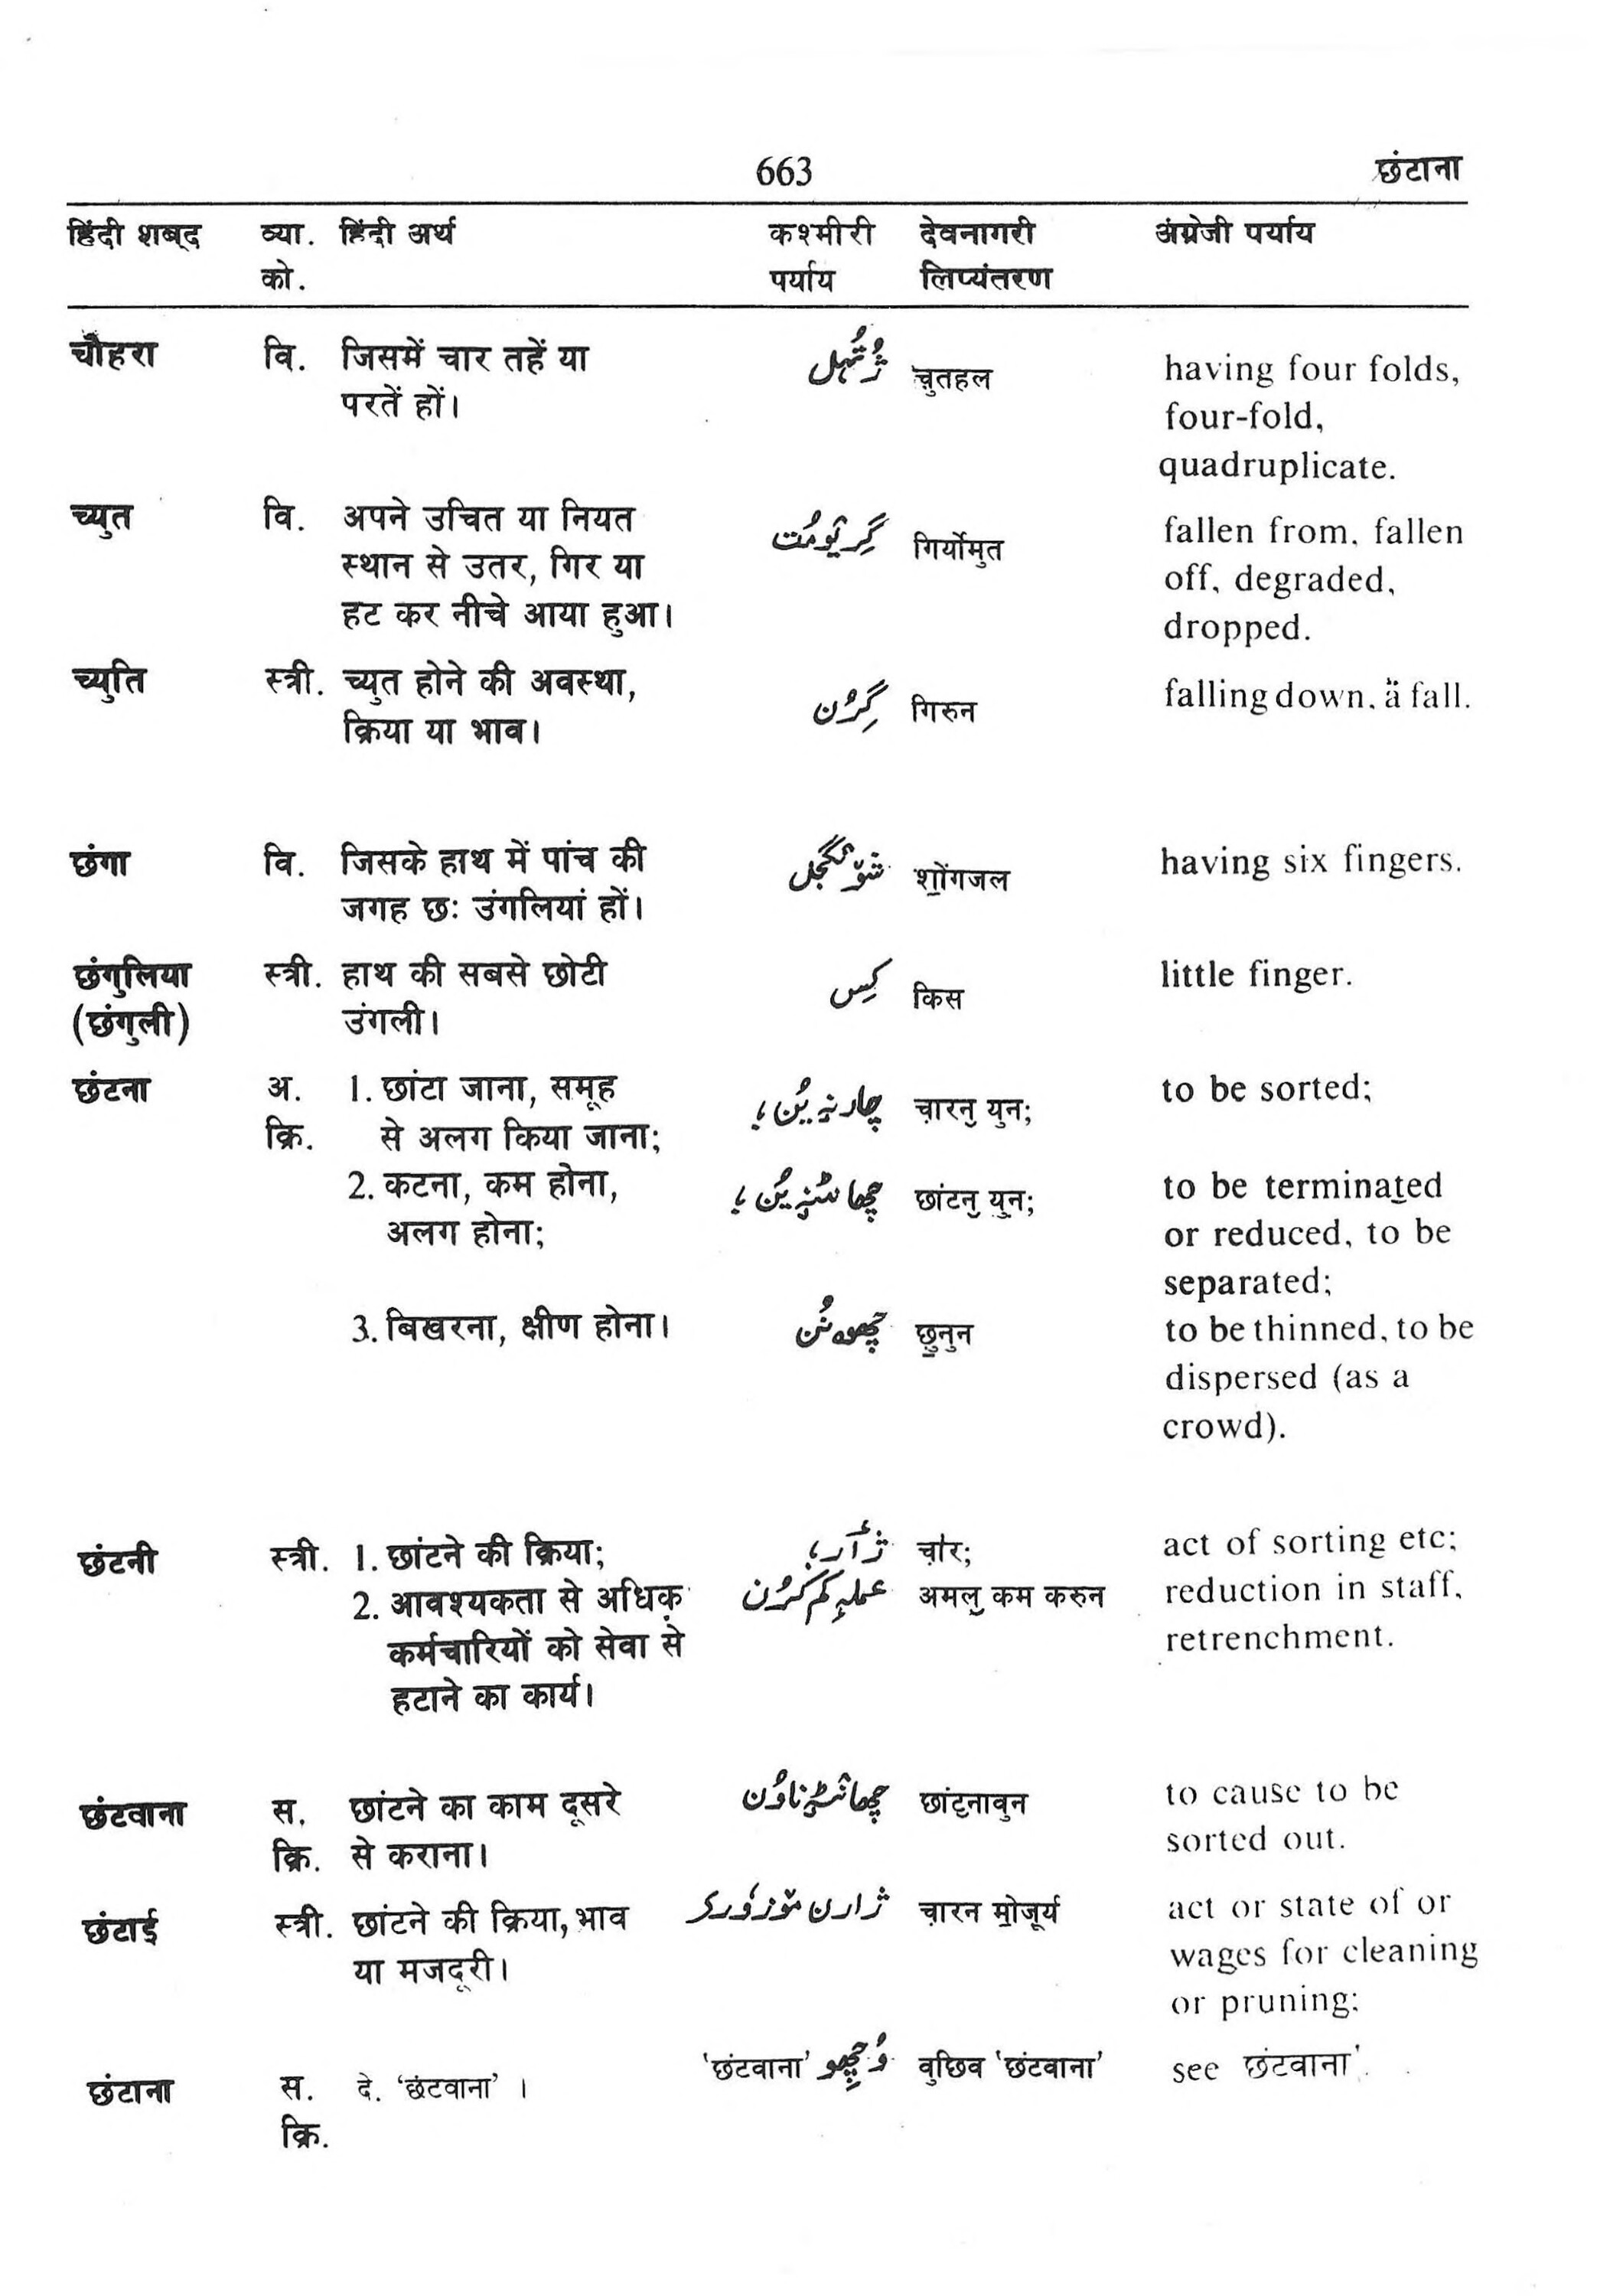 663 छंटाना
हिंदी शब्द व्या. हिंदी अर्थ कश्मीरी देवनागरी अंग्रेजी पर्याय
को. पर्याय लिप्यंतरण
चौहरा वि. जिसमें चार तहें या ژُتُہل च़ुतहल having four folds,
परतें हों। four-fold,
quadruplicate.
च्युत वि. अपने उचित या नियत گِریوٚمُت गिर्योमुत fallen from, fallen
स्थान से उतर, गिर या off, degraded,
हट कर नीचे आया हुआ। dropped.
च्युति स्त्री. च्युत होने की अवस्था, گِرُن गिरुन falling down, a fall.
क्रिया या भाव।
छंगा वि. जिसके हाथ में पांच की شوٚنگجل शो॒ंगजल having six fingers.
जगह छः उंगलियां हों।
छंगुलिया स्त्री. हाथ की सबसे छोटी کِس किस little finger.
(छंगुली) उंगली।
छंटना अ. 1. छांटा जाना, समूह چارنہٕ یُن؛ च़ारनु॒ युन; to be sorted;
क्रि. से अलग किया जाना;
2. कटना, कम होना, چھانٹنہٕ یُن؛ छांटनु॒ युन; to be terminated
अलग होना; or reduced, to be
separated;
3. बिखरना, क्षीण होना। छु॒नुन to be thinned, to be
dispersed (as a
crowd).
छंटनी स्त्री. 1. छांटने की क्रिया; ژٲر؛ च़ॉर; act of sorting etc;
2. आवश्यकता से अधिक عملہٕ کم کرُن अमलु॒ कम करुन reduction in staff,
कर्मचारियों को सेवा से retrenchment.
हटाने का कार्य।
छंटवाना स. छांटने का काम दूसरे چھانٹہٕ ناوُن छांट॒नावुन to cause to be
क्रि. से कराना। sorted out.
छंटाई स्त्री. छांटने की क्रिया, भाव ژارن موٚزوٗرۍ च़ारन मो॒जूर्य act or state of or
या मजदूरी। wages for cleaning
or pruning;
छंटाना स. दे. ‘छंटवाना’ । ‘छंटवाना’ وُچھِو वुछिव ‘छंटवाना’ see छंटवाना’.
क्रि.